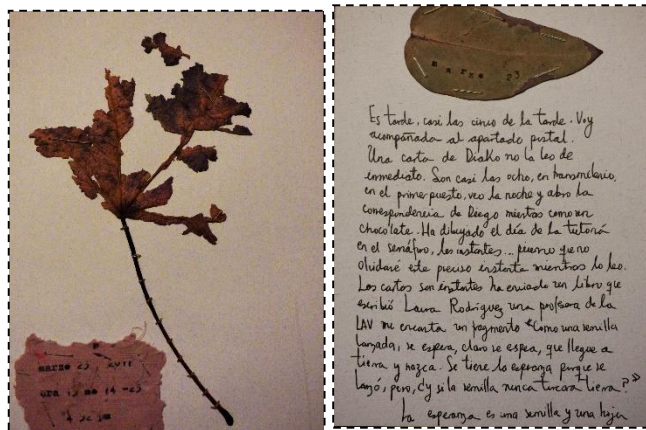 marzo 23, XVII
marzo 23
Es tarde, casi las cinco de la tarde. Voy
acompañada al apartado postal.
Una carta de Diako no la leo de
inmediato. Son casi las ocho, en transmilenio,
en el primer puesto, veo la noche y abro la
correspondencia de Diego mientras como un
chocolate. Ha dibujado el día de la tutoría
en el semáforo, los instantes... pienso que no
olvidaré este preciso instante mientras lo leo.
Las cartas son instantes ha enviado un libro que
escribió Laura Rodríguez una profesora de la
LAV me encanta un fragmento "Como una semilla
lanzada, se espera, claro se espera, que llegue a
tierra y nazca. Se tiene la esperanza porque se
lanzó, pero, ¿y si la semilla nunca tocara tierra?"
La esperanza es una semilla y una